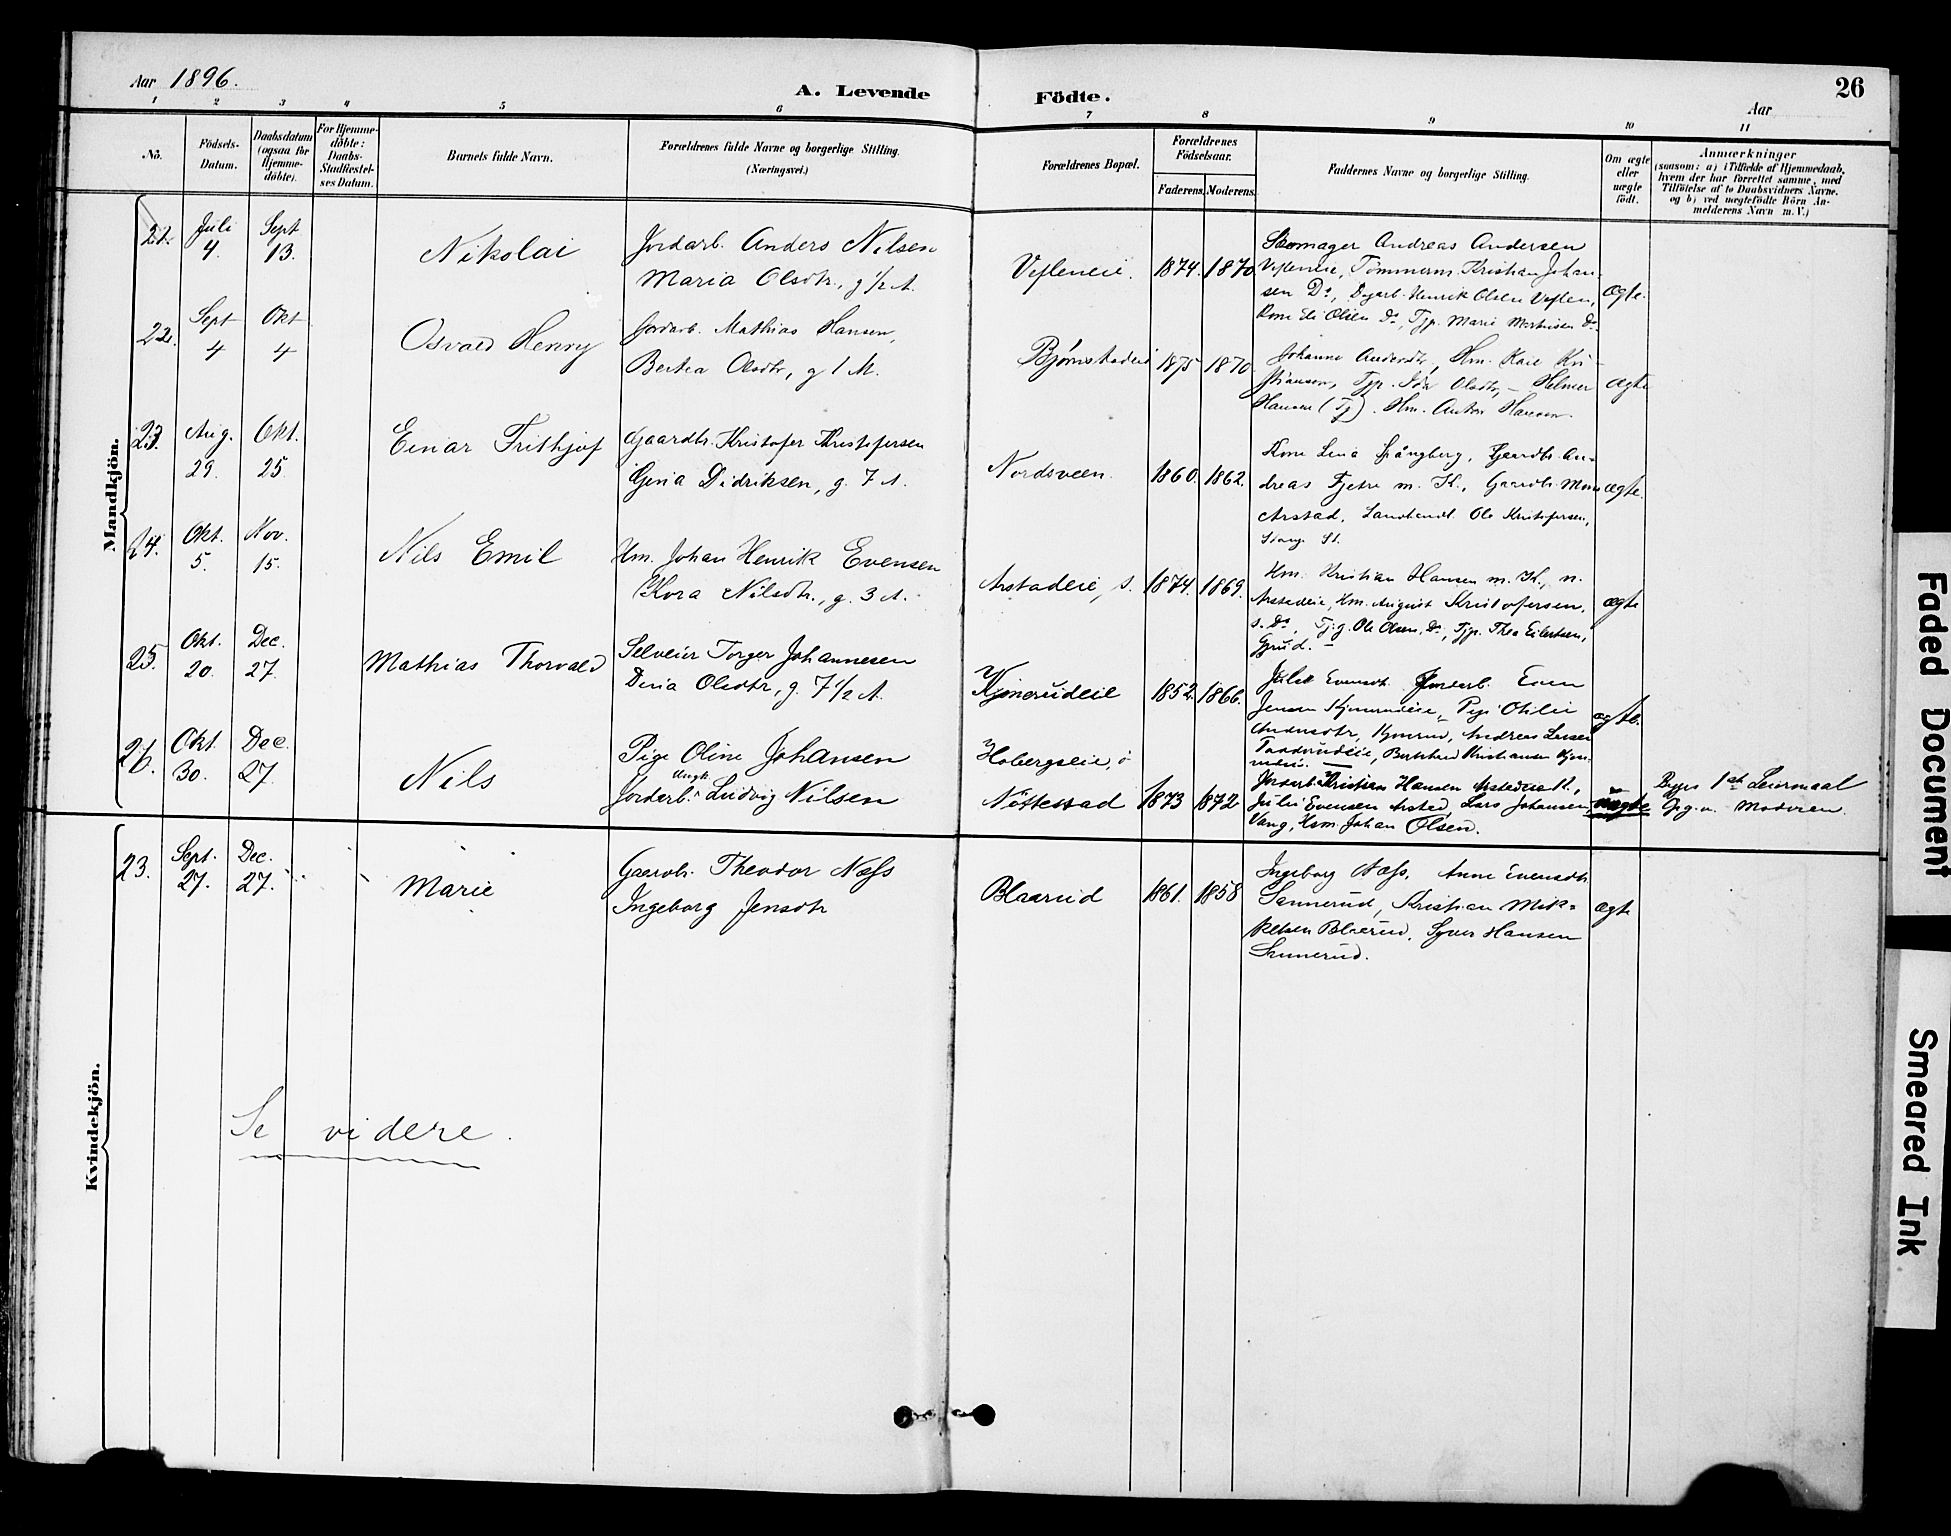 Aar 1896.
A. Levende Födte.
Aar
26
1 2 3 4 5 6 7 8 9 10 11
No.
Födsels-
Datum.
Daabsdatum
(ogsaa for
Hjemme-
döbte).
For Hjemme-
döbte:
Daabs-
Stadfæstel-
ses Datum.
Barnets fulde Navn.
Forældrenes fulde Navne og borgerlige Stilling.
(Næringsvei.)
Forældrenes Bopæl.
Forældrenes
Födselsaar.
Faderens. Moderens.
Faddernes Navne og borgerlige Stilling.
Om ægte
eller
uægte
født.
Anmærkninger
(saasom: a) i Tilfælde af Hjemmedaab,
hvem der har forrettet samme, med
Tilföielse af to Daabsvidners Navne,
og b) ved uægtefödte Börn An-
melderens Navn m. V.)
Mandkjön.
21.
Juli
4.
Sept
13.
Nikolai
Jordarb. Anders Nilsen
Maria Olsdtr., g 1/2 A.
Vefleneie.
1874. 1870
Skomager Andreas Andersen
Vefleneie, Tömmerm. Kristian Johan-
sen Do, Dagarb. Henrik Olsen Veflen,
Kone Olsen Do, Tjp. Marie Do
ægte.
22.
Sept
4
Okt
4
Osvald Henry
Jordarb. Mathias Hansen,
Bertea Olsdtr, g 1 M.
Bjørnstadeie
1875 1870.
Johanne Andersdtr, Hm. Kri-
stiansen, Tjp. Ida Olsdtr, – Helmer
Hansen (Tj). Hm. Anton Hansen.
ægte
23.
Aug.
29.
Okt.
25.
Einar Frithjof
Gaardbr. Kristofer Kristofersen
Gina Didriksen, g. 7 A.
Nordsveen.
1860. 1862.
Kone Lina Spångberg, Gaardbr. An-
dreas Fjetre m. K., Gaardbr.
Arstad, Landhandl. Ole Kristofersen,
Stange St.
ægte.
24.
Okt.
5.
Nov.
15.
Nils Emil
Hm. Johan Henrik Evensen
Kora Nilsdtr., g. 3 A.
Arstadeie, s.
1874. 1869.
Hm. Kristian Hansen m. K., n.
Arstadeie, Hm. August Kristofersen,
s. Do, Tj.g. Ole Olsen, Do, Tjp. Thea Eilertsen,
ægte
25.
Okt.
20.
Dec.
27.
Mathias Thorvald
Selveier Torger Johannesen
Dina Olsdtr, g. 7 1/2 A.
Kjonerudeie
1852. 1866.
Evensdtr. Jordarb. Even
Jensen Pige Otilie
Andersdtr, Andreas Larsen
Kristiansen
ægte.
26.
Okt.
30.
Dec.
27.
Nils
Pige Oline Johansen
Ungk.
Jorderb. Ludvig Nilsen
Hobergseie, ö
Nöttestad
1873 1872
Jorderb. Kristian Hansen Arstadeie K.,
Julie Evensen Arsted, Lars Johansen,
Vang, Hsm. Johan Olsen.
uægte
Begges 1ste Leiermaal
Opg. a. Moderen.
Kvindekjön.
23.
Sept.
27.
Dec.
27.
Marie
Gaardb. Theodor Næss
Ingeborg Jensdtr
Blaarud
1861. 1858
Ingeborg Næss, Anne Evensdtr.
Sannerud, Kristian Mik-
kelsen Blaerud, Syver Hansen
Sannerud.
ægte
Se videre.
Faded Document
Smeared Ink